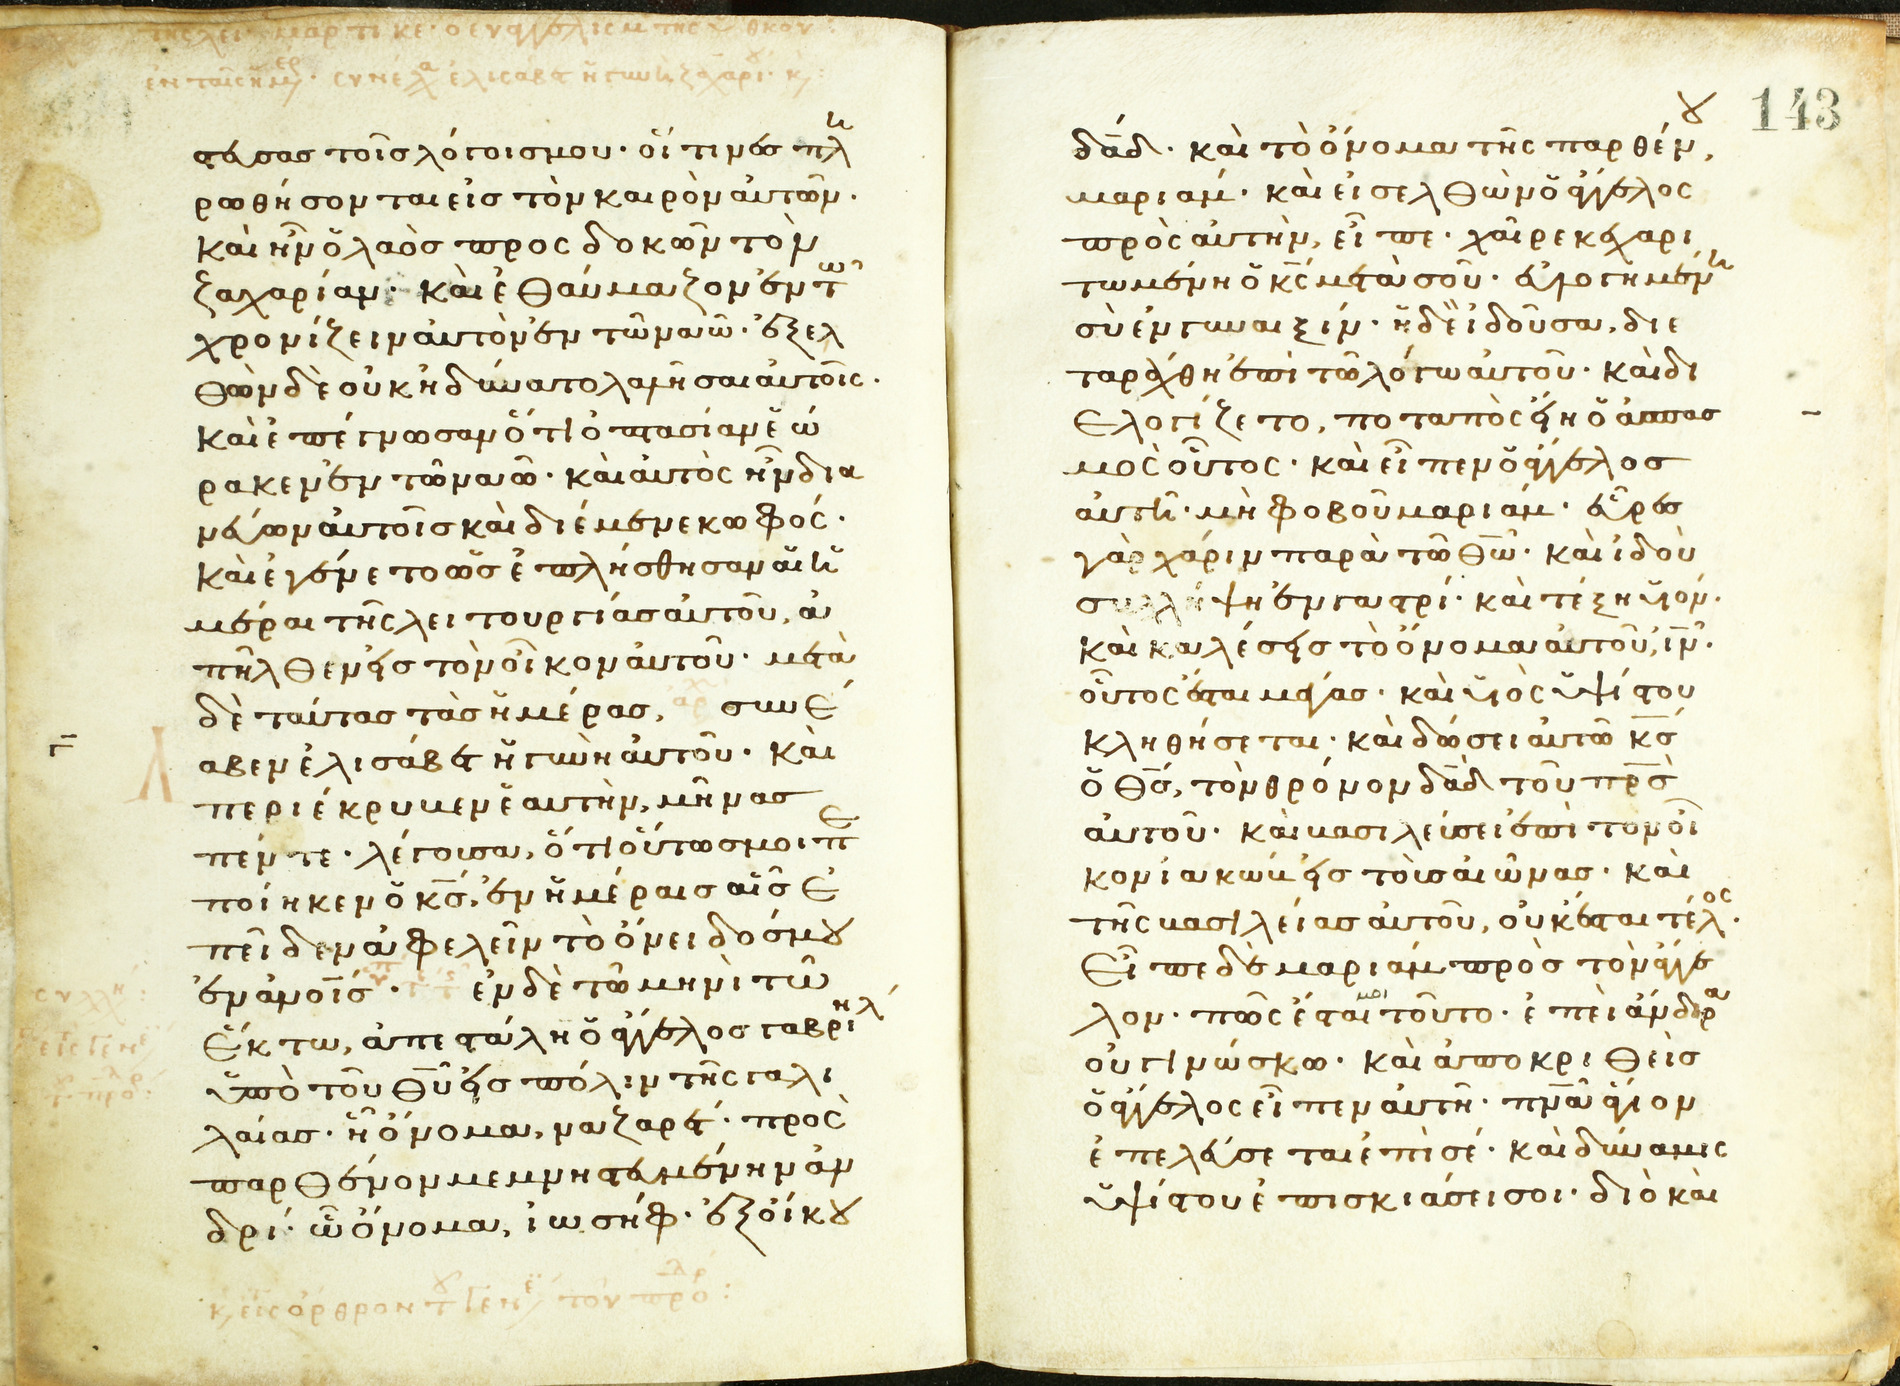 ἐν ταῖς ἡμ συνέλα ἐλισάβετ ἡ γυνὴ ζαχαρίου
τευσας τοῖς λόγοις μου· οἵτινες πλη
ρωθήσονται εἰς τὸν καιρὸν αὐτῶν·
καὶ ἦν ὁ λαὸς προσδοκῶν τὸν
ζαχαρίαν· καὶ ἐθαύμαζον ἐν τῶ
χρονίζειν αὐτὸν ἐν τῶ ναῶ· ἐξελ
θὼν δὲ οὐκ ἠδύνατο λαλῆσαι αὐτοῖς·
καὶ ἐπέγνωσαν ὅτι ὀπτασίαν ἑώ
ρακεν ἐν τῶ ναῶ· καὶ αὐτὸς ἦν δια
νεύων αὐτοῖς καὶ διέμενε κωφός·
καὶ ἐγένετο ὡς ἐπλήσθησαν αἱ ἡ
μέραι τῆς λειτουργίας αὐτοῦ, ἀ
πῆλθεν εἰς τὸν οἶκον αὐτοῦ· μετὰ
δὲ ταύτας τὰς ἡμέρας, συνέ
λαβεν ἐλισάβετ ἡ γυνὴ αὐτοῦ· καὶ
περιέκρυβεν ἑαυτὴν, μῆνας
πέντε· λέγουσα, ὅτι οὕτως μοι πε
ποίηκεν ὁ κς, ἐν ἡμέραις αἷς ἐ
πεῖδεν ἀφελεῖν τὸ ὄνειδός μου
ἐν ἀνοις· ἐν δὲ τῶ μηνὶ τῶ
ἕκτω, ἀπεστάλη ὁ ἄγγελος γαβριὴλ
ὑπὸ τοῦ θυ εἰς πόλιν τῆς γαλι
λαίας· ἧ ὄνομα, ναζαρέτ· πρὸς
παρθένον μεμνηστευμένην ἀν
δρί· ὧ ὄνομα, ἰωσήφ· ἐξ οἴκου
κ εἰς ὀρθρον
143
δαδ· καὶ τὸ ὄνομα τῆς παρθένου,
μαριάμ· καὶ εἰσελθὼν ὁ ἄγγελος
πρὸς αὐτὴν, εἶπε· χαῖρε κεχαρι
τωμένη ὁ κς μετὰ σοῦ· εὐλογημένη
σὺ ἐν γυναιξίν· ἡ δὲ ἰδοῦσα, διε
ταράχθη ἐπὶ τῶ λόγω αὐτοῦ· καὶ δι
ελογίζετο, ποταπὸς εἴη ὁ ἀσπασ
μὸς οὗτος· καὶ εἶπεν ὁ ἄγγελος
αὐτῆ· μὴ φοβοῦ μαριάμ· εὗρες
γὰρ χάριν παρὰ τῶ θω· καὶ ἰδοὺ
συλλήψη ἐν γαστρί· καὶ τέξη υἱόν·
καὶ καλέσεις τὸ ὄνομα αὐτοῦ, ιν·
οὗτος ἔσται μέγας· καὶ υἱὸς ὑψίστου
κληθήσεται· καὶ δώσει αὐτῶ κς
ὁ θς, τὸν θρόνον δαδ τοῦ πρς
αὐτοῦ· καὶ βασιλεύσει ἐπὶ τὸν οἶ
κον ἰακὼβ εἰς τοὺς αἰῶνας· καὶ
τῆς βασιλείας αὐτοῦ, οὐκ ἔσται τέλος·
Εἶπε δὲ μαριὰμ πρὸς τὸν ἄγγε
λον· πῶς ἔσται μοι τοῦτο· ἐπεὶ ἄνδρα
οὐ γινώσκω· καὶ ἀποκριθεὶς
ὁ ἄγγελος εἶπεν αὐτῆ· πνα ἅγιον
ἐπελεύσεται ἐπὶ σέ· καὶ δύναμις
ὑψίστου ἐπισκιάσει σοι· διὸ καὶ